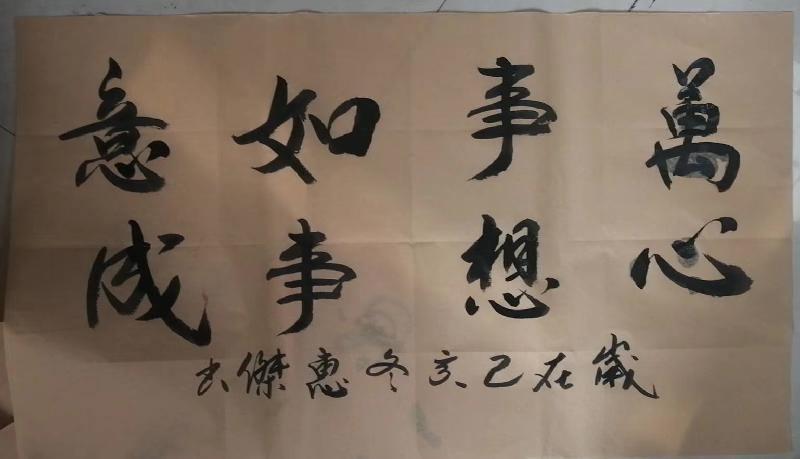 萬事如意
心想事成
歲在己亥冬惠傑书